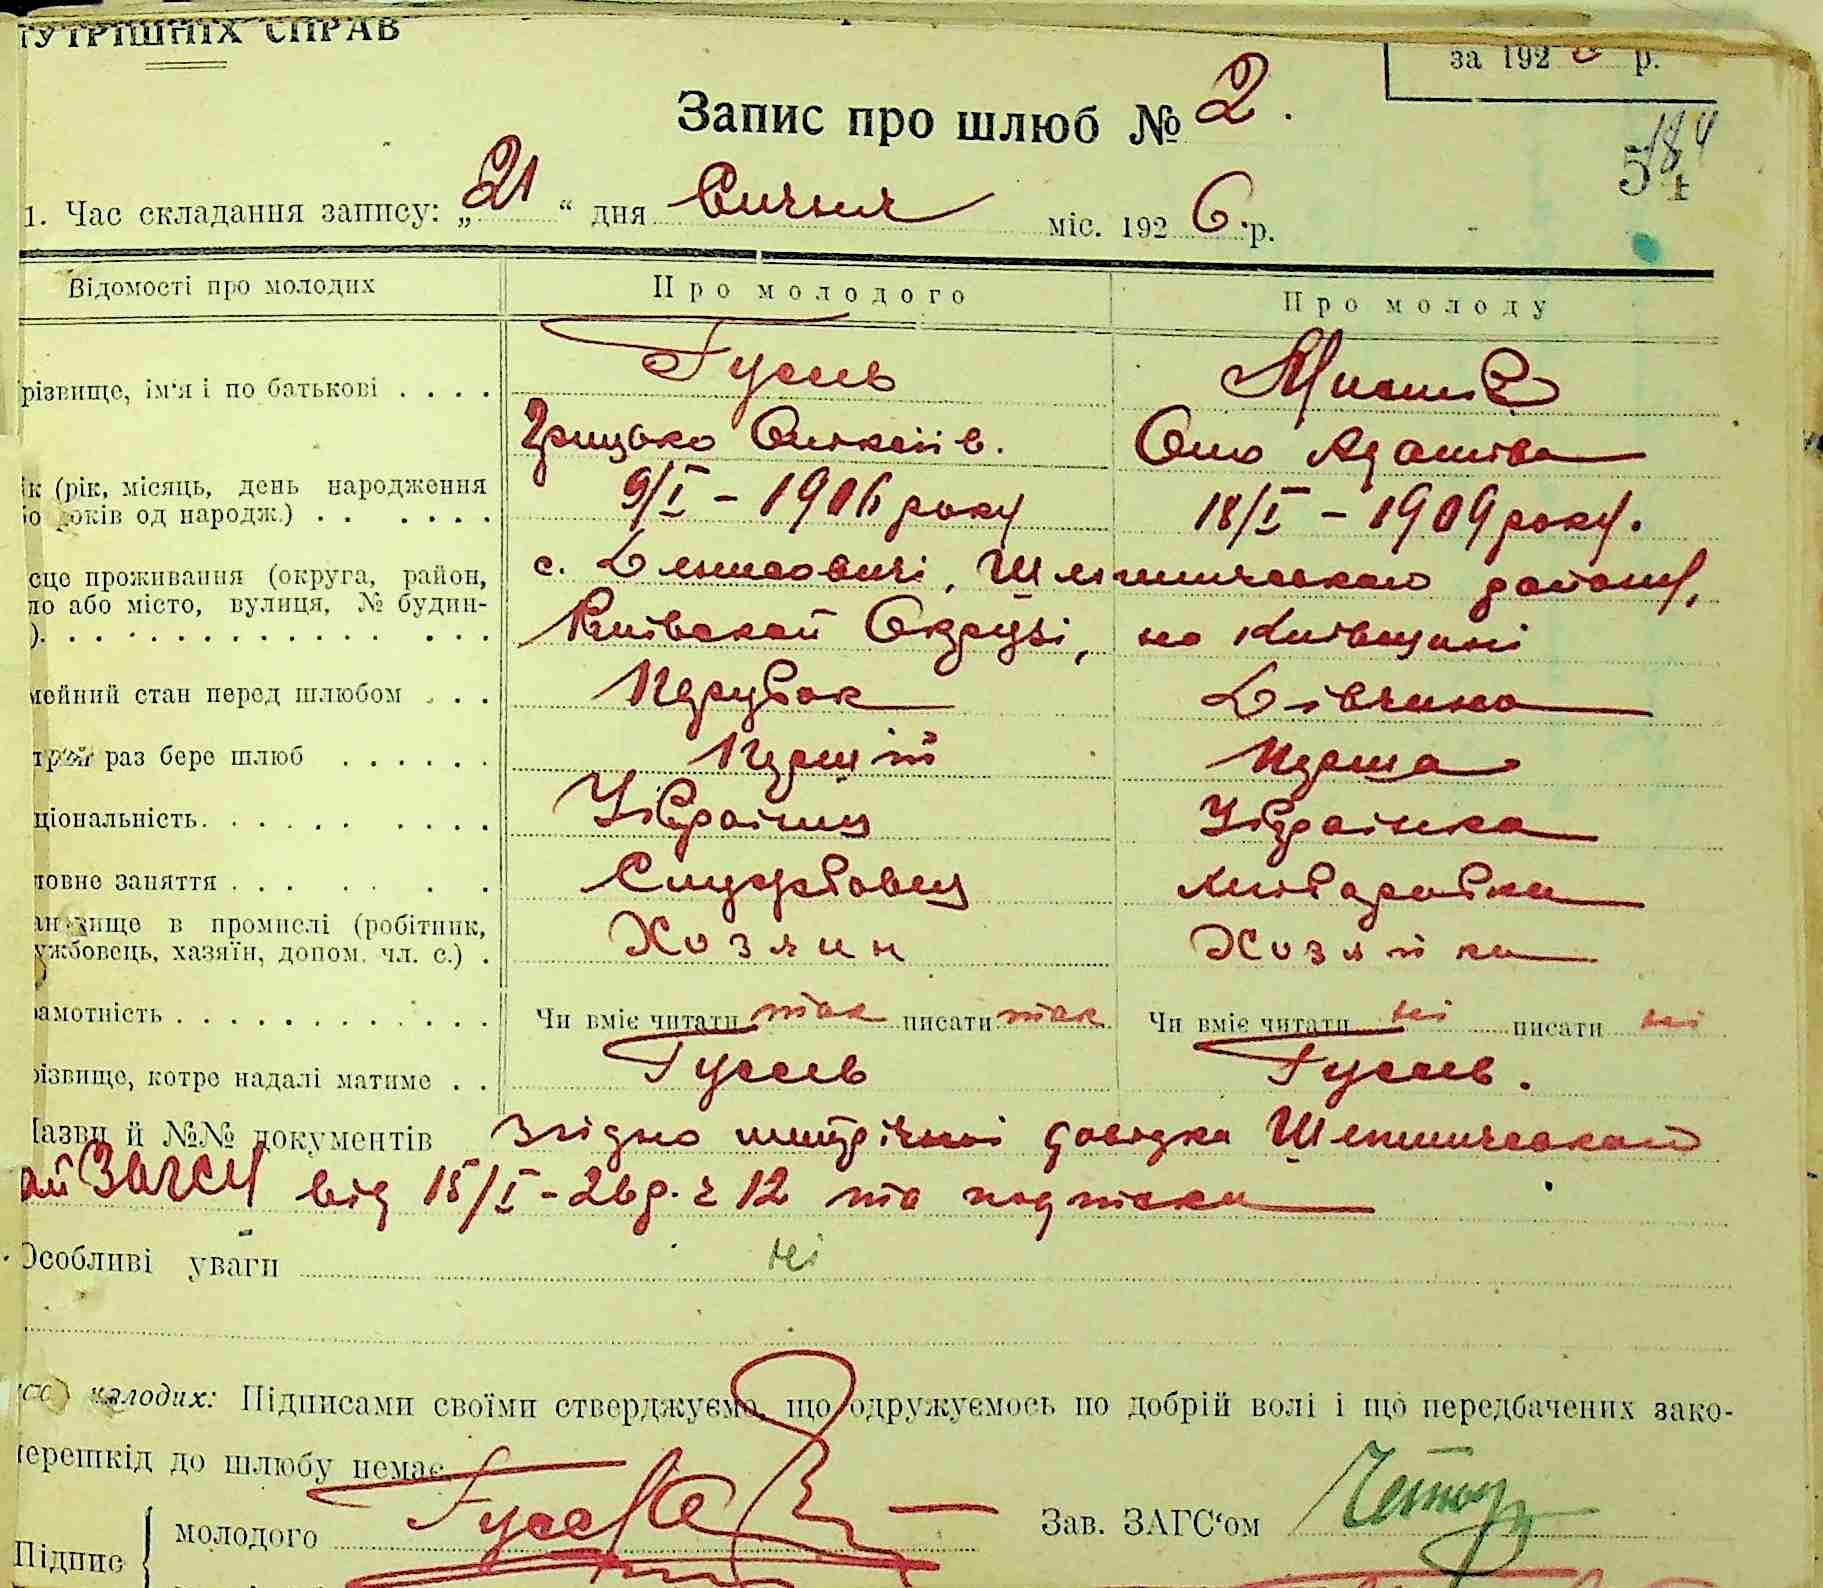 ТУТРІШНІХ СПРАВ
за 192 6 р.
Запис про шлюб № 2.
184
54
1. Час складання запису: „21“ дня Січня міс. 1926 р.
Відомості про молодих Про молодого Про молоду
різвище, ім'я і по батькові . . . . Гусев
Грицько в. Адамівна
ік (рік, місяць, день народження
о років од народж.) . . . . . . 9/I – 1906 року 18/I – 1909 року.
сце проживання (округа, район, с. району,
ло або місто, вулиця, № будин-
). . . . Київської Округі, на Київщині
мейний стан перед шлюбом . . . Парубок Дівчина
трий раз бере шлюб . . . . . . Перший Перша
ціональність. . . . . . . . . . Українец Українка
ловне заняття . . . . . . Службовец Хліборобка
ановище в промислі (робітник,
ужбовець, хазяїн, допом. чл. с.) . Хозяин Хозяйка
амотність . . . . . . . . . . . . Чи вміє читати так писати так Чи вміє читати ні писати ні
різвище, котре надалі матиме . . Гусев Гусев.
Назви й №№ документів Згідно метричної довідки
ай ЗАГСУ від 15/I – 26 р. ч 12 та подписка
Особливі уваги ні
молодих: Підписами своїми стверджуємо, що одружуємось по добрій волі і що передбачених зако-
перешкід до шлюбу немає.
Підпис молодого Зав. ЗАГС'ом